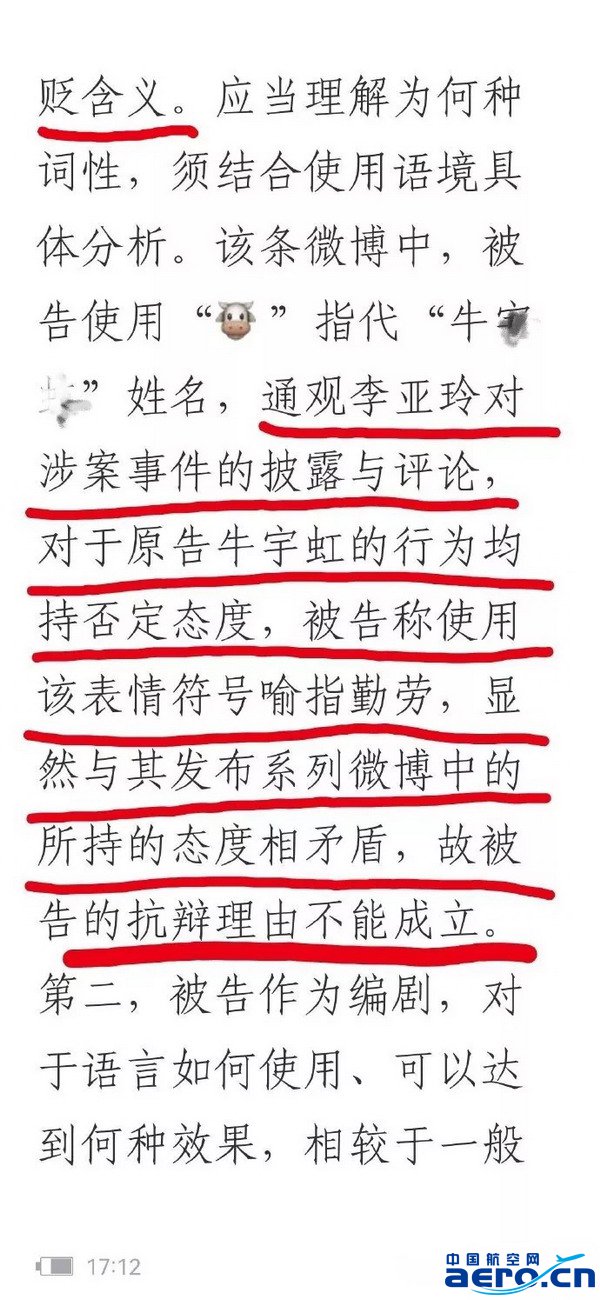 贬含义。应当理解为何种
词性，须结合使用语境具
体分析。该条微博中，被
告使用“🐮”指代“牛
”姓名，通观李亚玲对
涉案事件的披露与评论，
对于原告牛宇虹的行为均
持否定态度，被告称使用
该表情符号喻指勤劳，显
然与其发布系列微博中的
所持的态度相矛盾，故被
告的抗辩理由不能成立。
第二，被告作为编剧，对
于语言如何使用、可以达
到何种效果，相较于一般
17:12
中国航空网
aero.cn